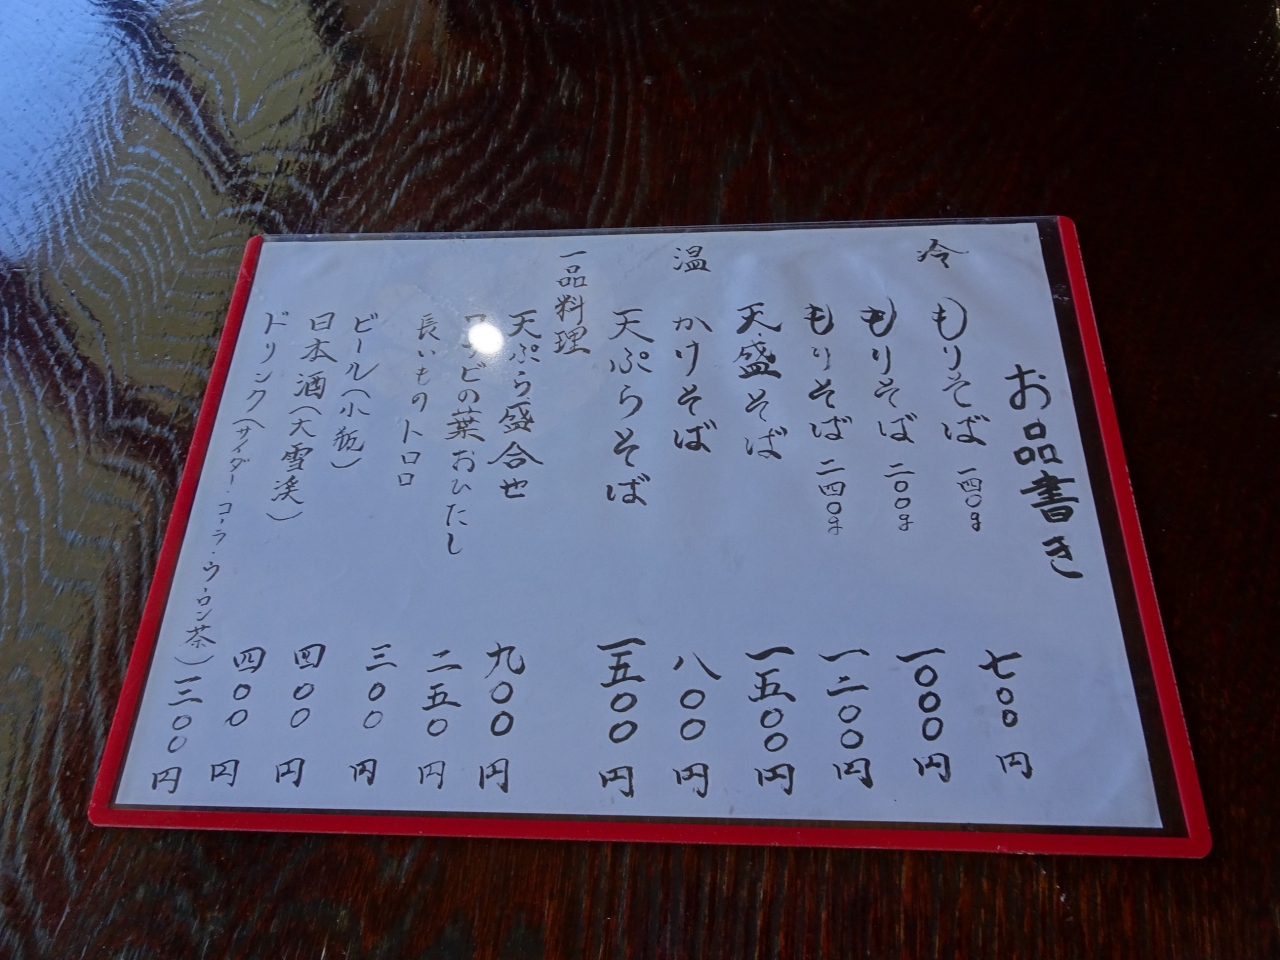 お品書き
冷
もりそば 一四〇g 七〇〇円
もりそば 二〇〇g 一〇〇〇円
もりそば 二四〇g 一二〇〇円
天盛そば 一五〇〇円
温
かけそば 八〇〇円
天ぷらそば 一五〇〇円
一品料理
天ぷら盛合せ 九〇〇円
の葉おひたし 二五〇円
長いものトロロ 三〇〇円
ビール(小瓶) 四〇〇円
日本酒(大雪渓) 四〇〇円
ドリンク(サイダー・コーラ・ウーロン茶) 三〇〇円